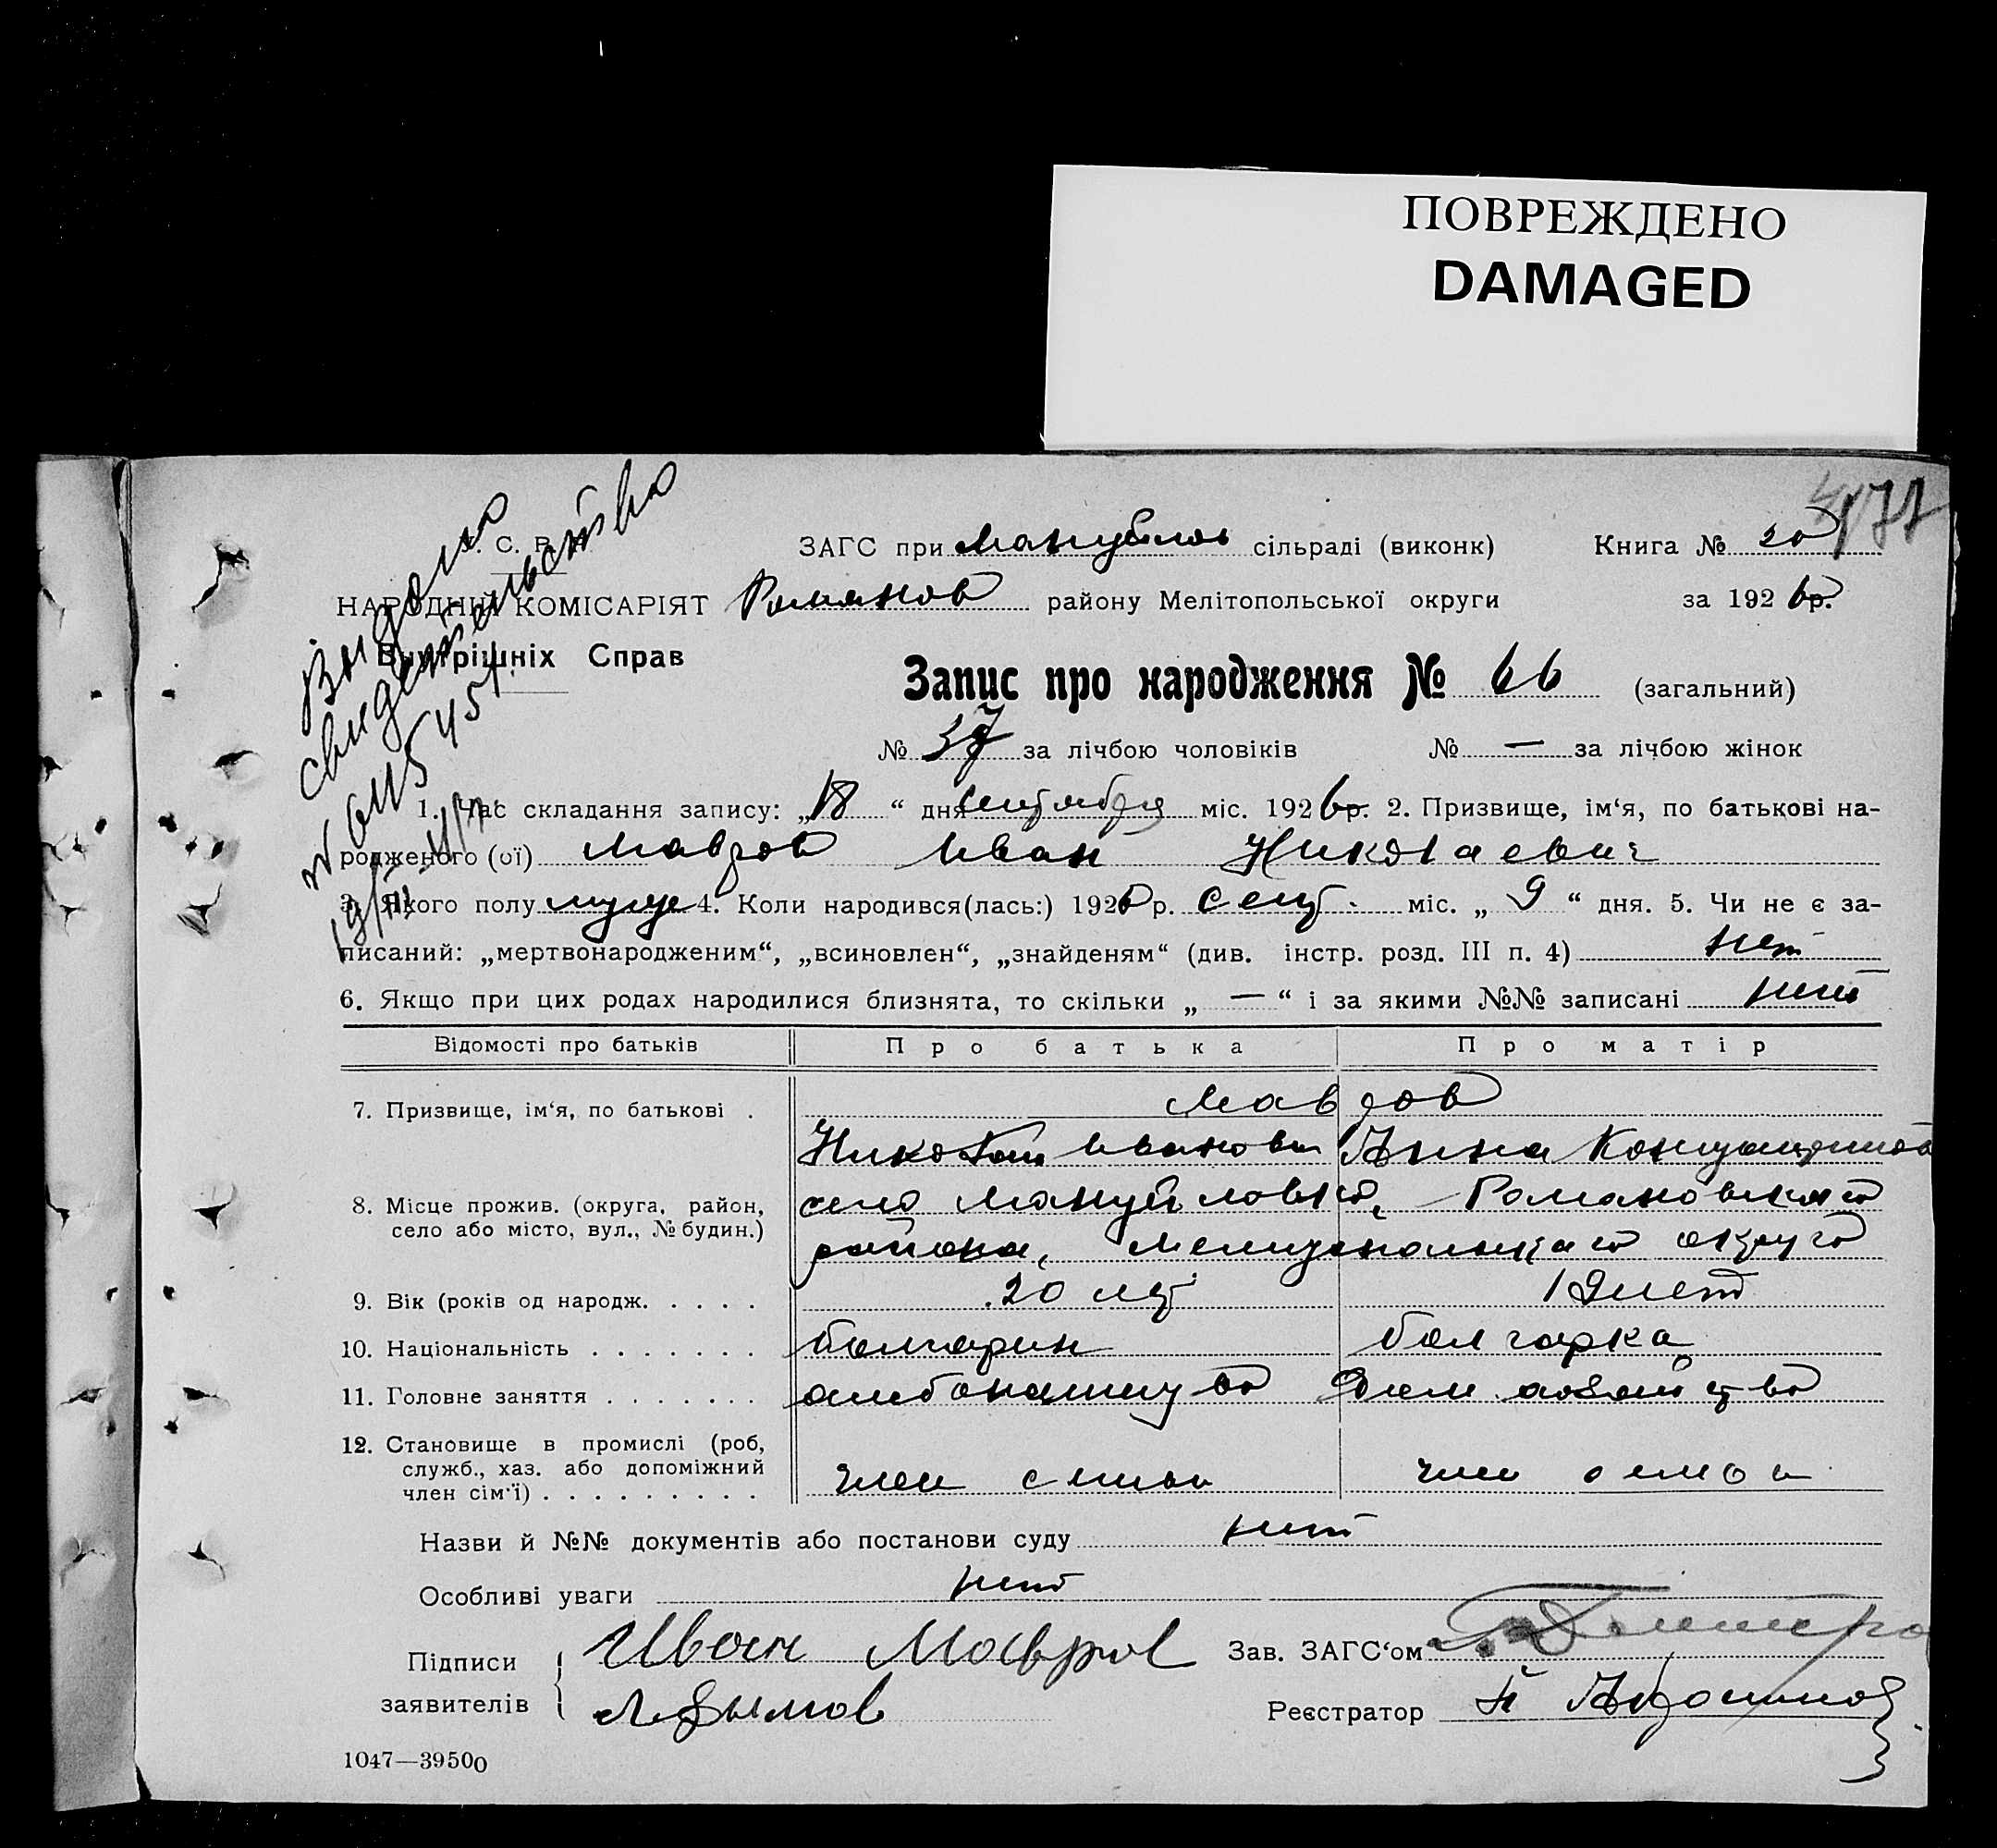 ПОВРЕЖДЕНО
DAMAGED
Выдано
свидетельство
У. С. Р. Р.
ЗАГС при Мануйлов сільраді (виконк) Книга № 20
НАРОДНІЙ КОМІСАРІЯТ Романов району Мелітопольської округи за 1926 р.
Внутрішніх Справ
Запис про народження № 66 (загальний)
№ 37 за лічбою чоловіків № — за лічбою жінок
1. Час складання запису: „18“ дня сентября міс. 1926 р. 2. Призвище, ім‘я, по батькові на-
родженого (ої) Мавров Иван Николаевич
3. Якого полу муж 4. Коли народився(лась:) 1926 р. сент. міс. „9“ дня. 5. Чи не є за-
писаний: „мертвонародженим“, „всиновлен“, „знайденям“ (див. інстр. розд. III п. 4) нет
6. Якщо при цих родах народилися близнята, то скільки „ — “ і за якими №№ записані нет
Відомості про батьків Про батька Про матір
7. Призвище, ім‘я, по батькові . Мавров
Николай Иванови Анна
8. Місце прожив. (округа, район, село Мануйловка, Романовского
село або місто, вул., № будин.) района, Мелитопольского округа
9. Вік (років од народж. . . . . 20 лет 19 лет
10. Національність . . . . . . . болгарин болгарка
11. Головне заняття . . . . . . . хлебопашество Дом. хозяйство
12. Становище в промислі (роб,
служб., хаз. або допоміжний член семьи член семьи
член сім‘ї) . . . . . . . . .
Назви й №№ документів або постанови суду нет
Особливі уваги нет
Підписи Иван Мавров Зав. ЗАГС‘ом
заявителів Реєстратор
1047—39500